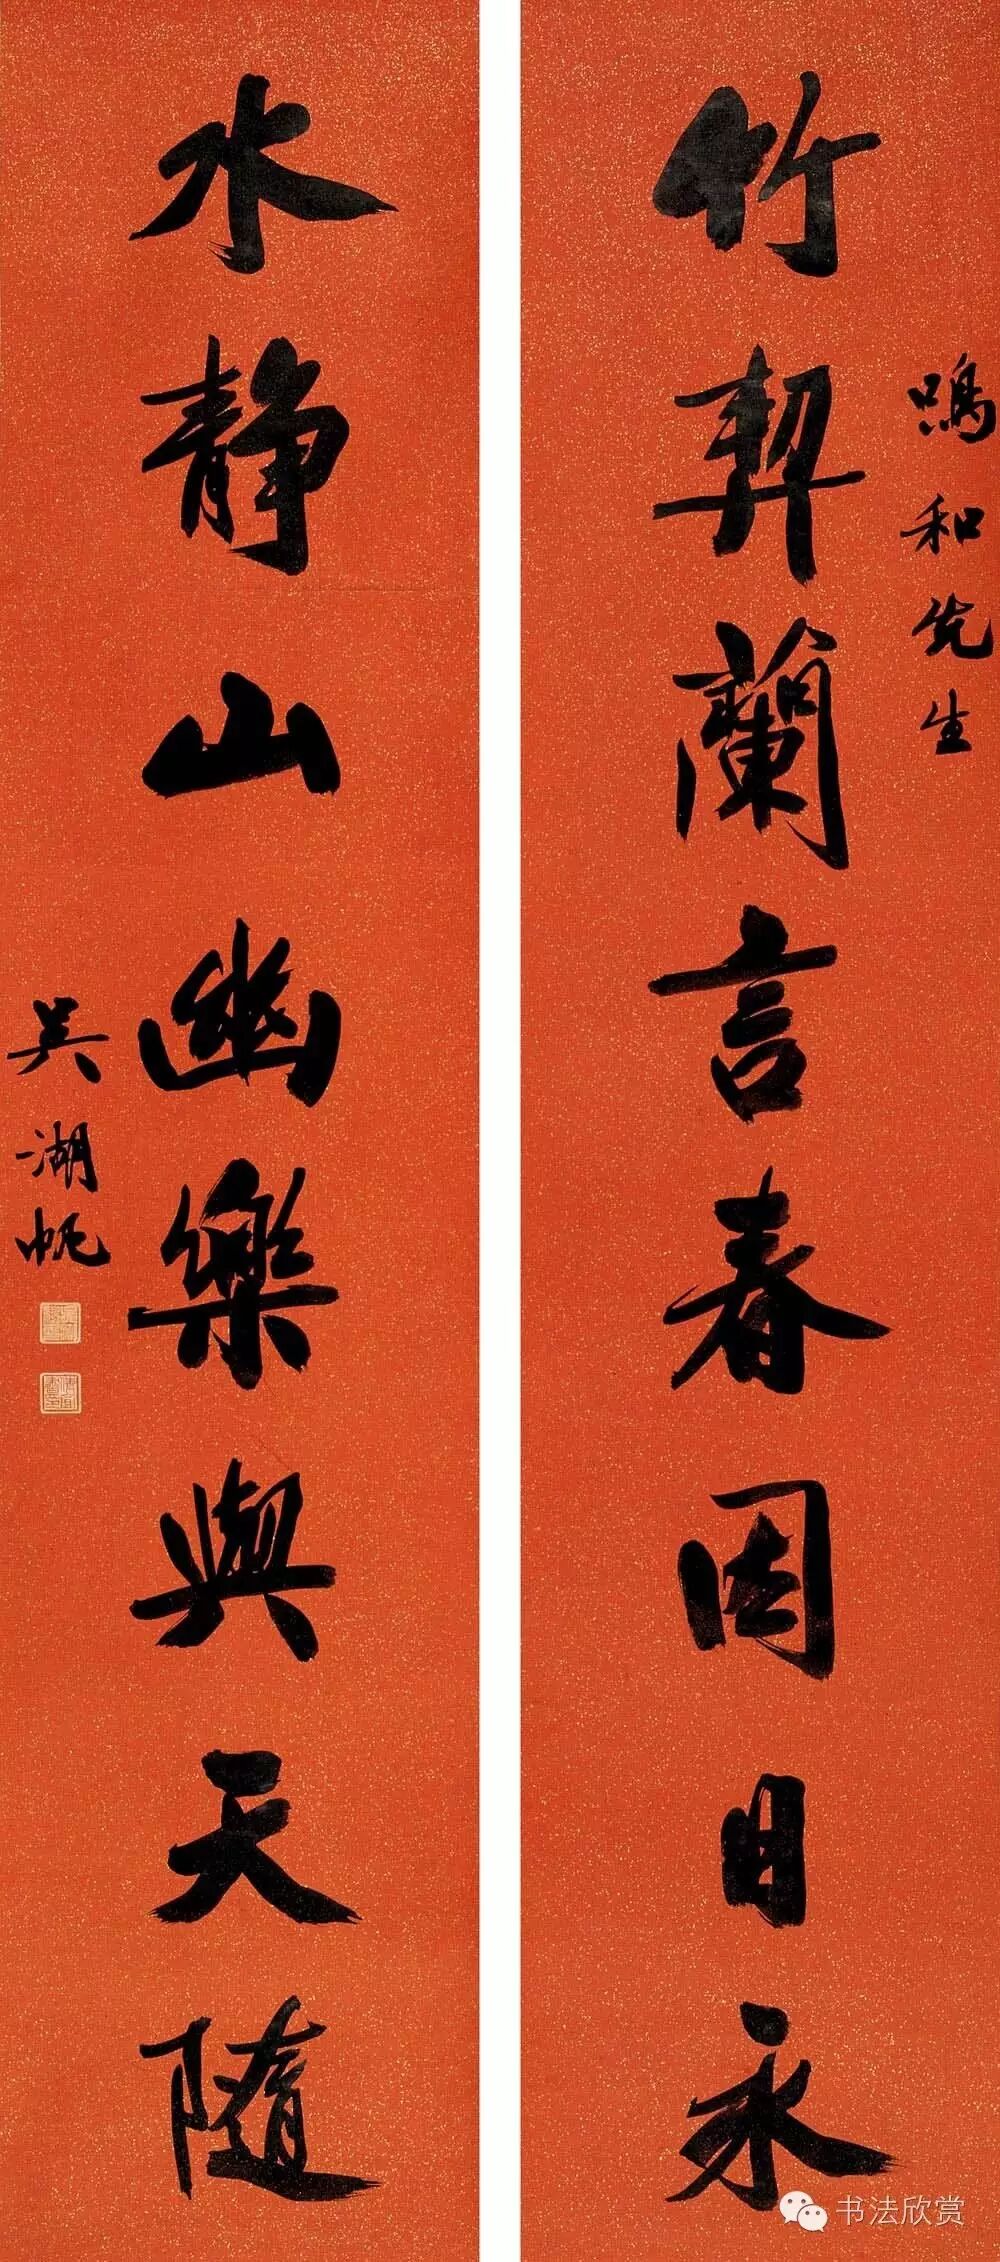 鳴和先生
竹契蘭言春因日永
水静山幽樂與天随
吴湖帆
书法欣赏